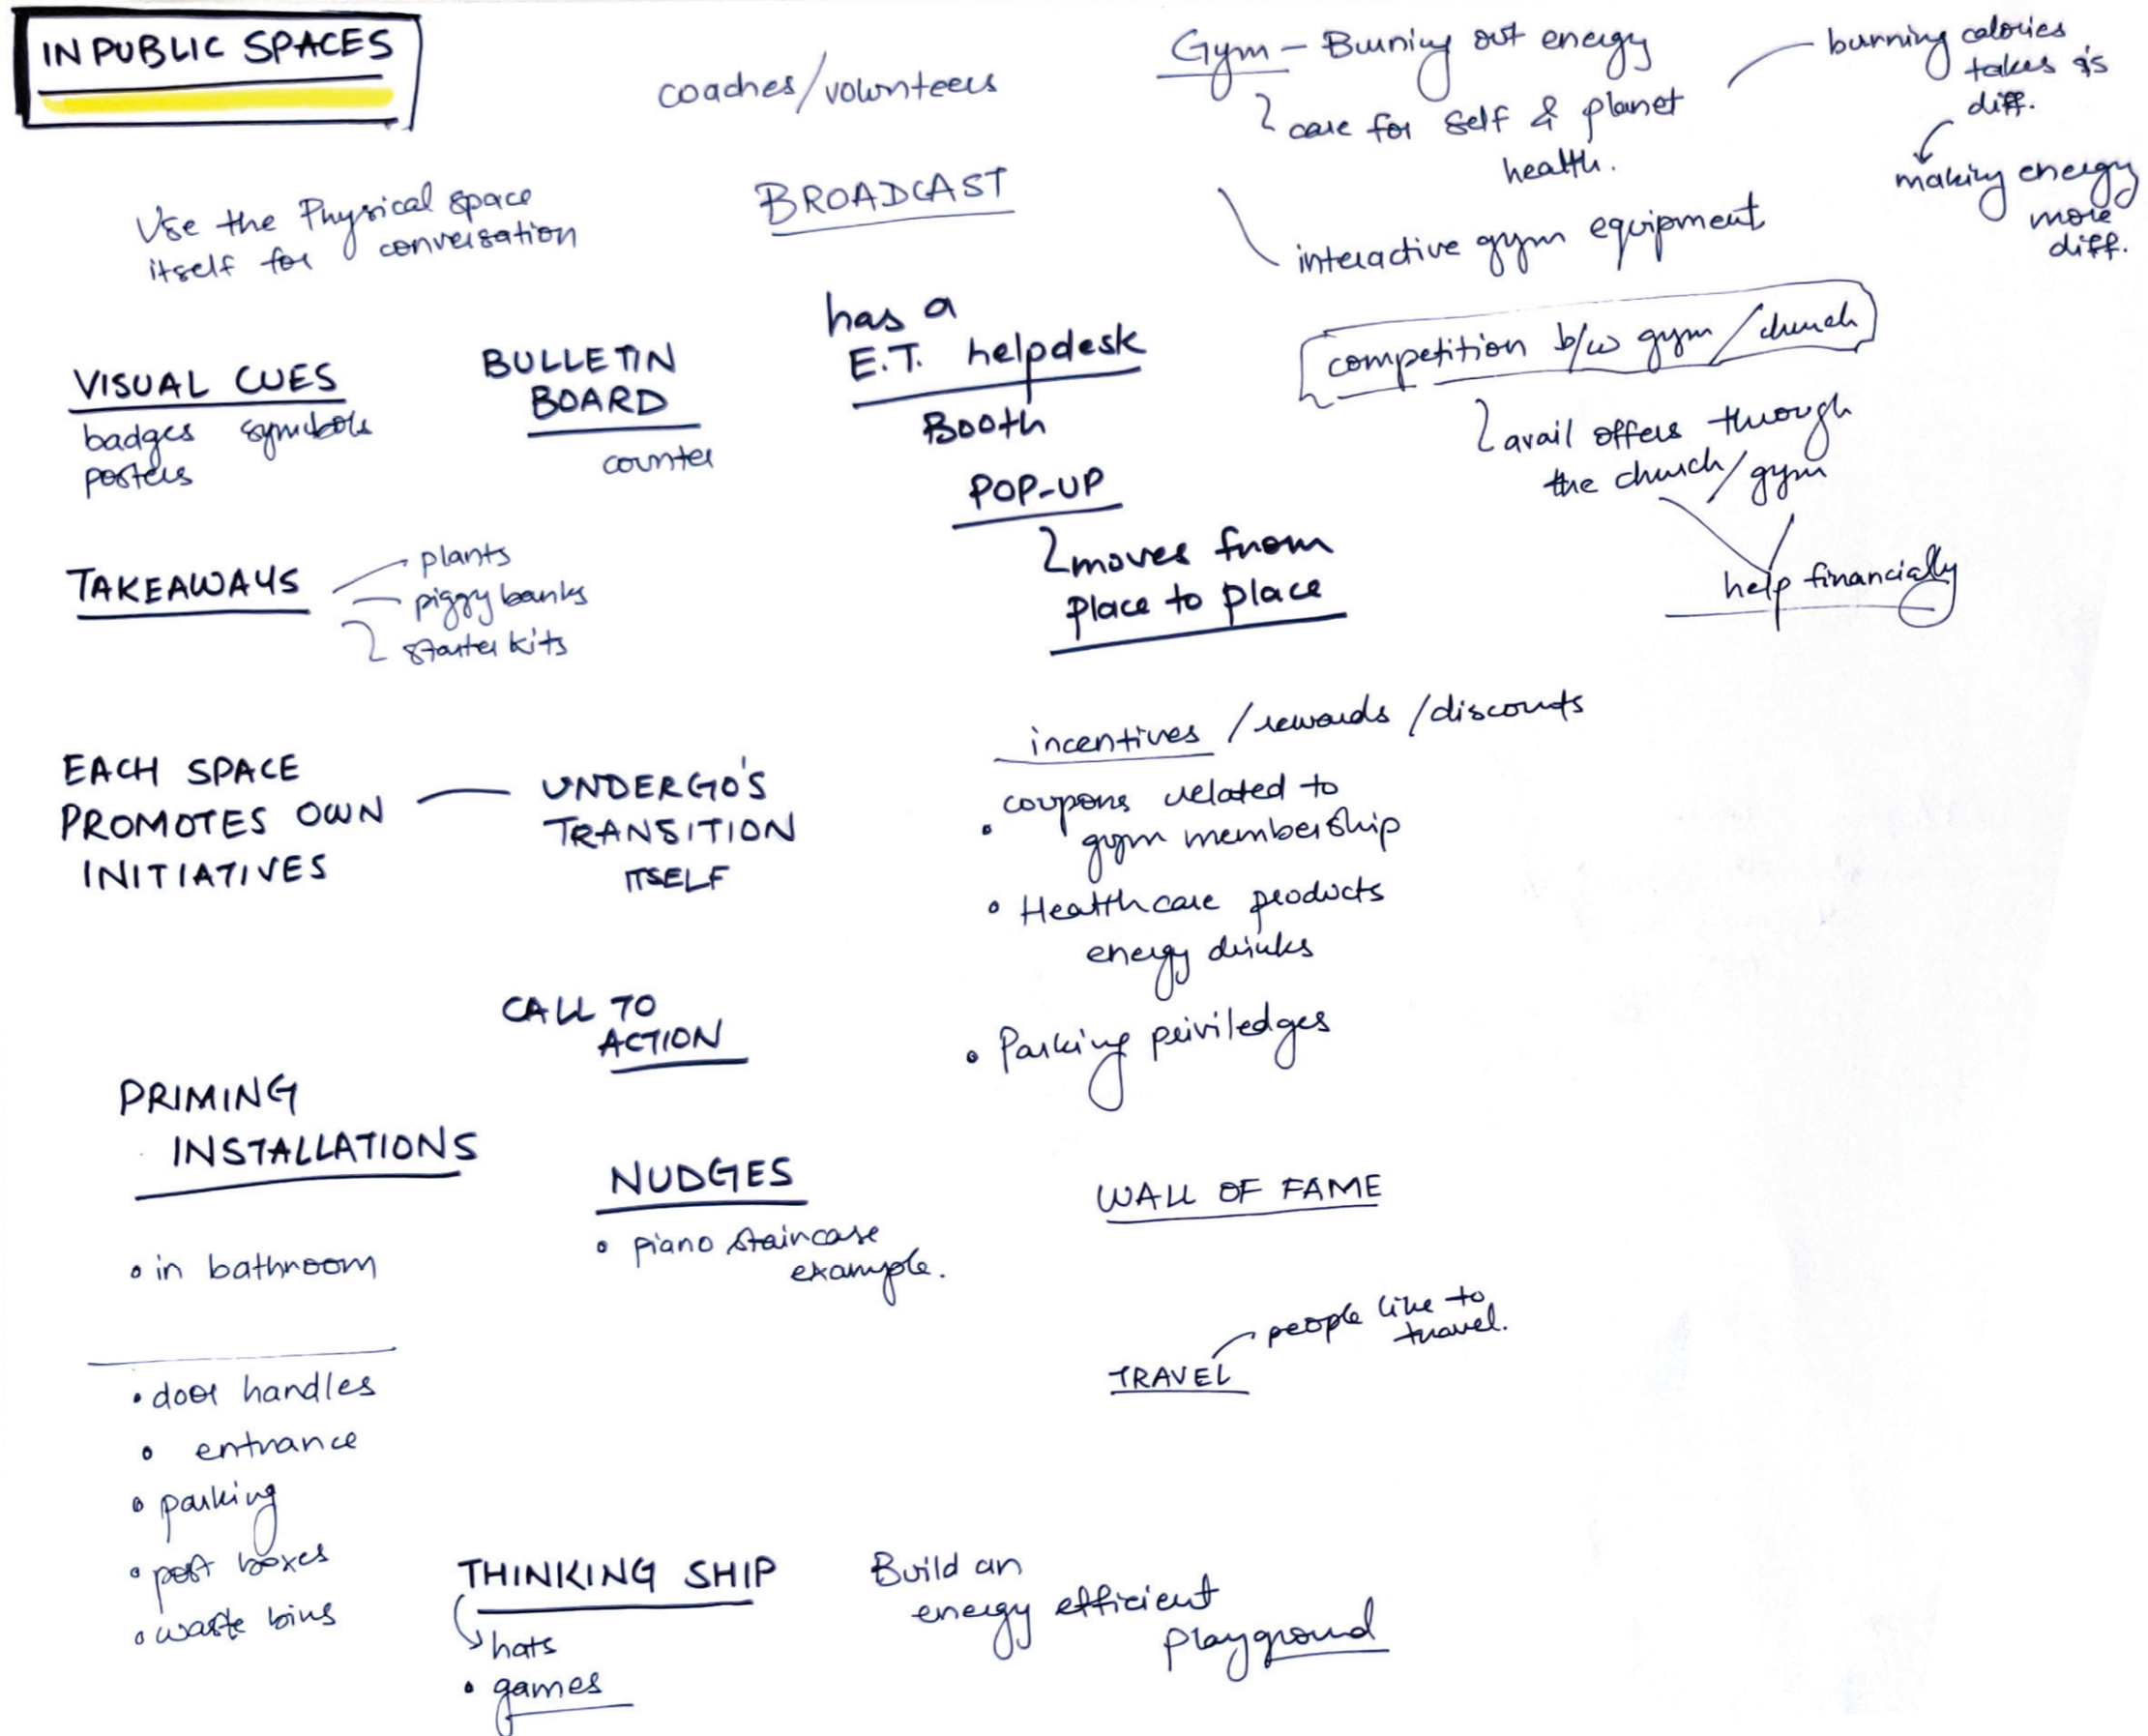 IN PUBLIC SPACES
coaches/volunteers
Gym - Burning out energy
care for self & planet
health.
burning calories
takes is
diff.
making energy
more
diff.
interactive gym equipment
Use the Physical space
itself for conversation
BROADCAST
has a
E.T. helpdesk
Booth
POP-UP
moves from
place to place
competition b/w gym/church
avail offers through
the church/gym
help financially
VISUAL CUES
badges symbols
posters
BULLETIN
BOARD
counter
TAKEAWAYS
plants
piggy banks
starter kits
EACH SPACE
PROMOTES OWN
INITIATIVES
UNDERGO'S
TRANSITION
ITSELF
incentives /rewards /discounts
• coupons related to
gym membership
• Healthcare products
energy drinks
• Parking priviledges
CALL TO
ACTION
PRIMING
INSTALLATIONS
• in bathroom
• door handles
• entrance
• parking
• post boxes
• waste bins
NUDGES
• piano staircase
example.
WALL OF FAME
TRAVEL
people like to
travel.
THINKING SHIP
hats
• games
Build an
energy efficient
playground